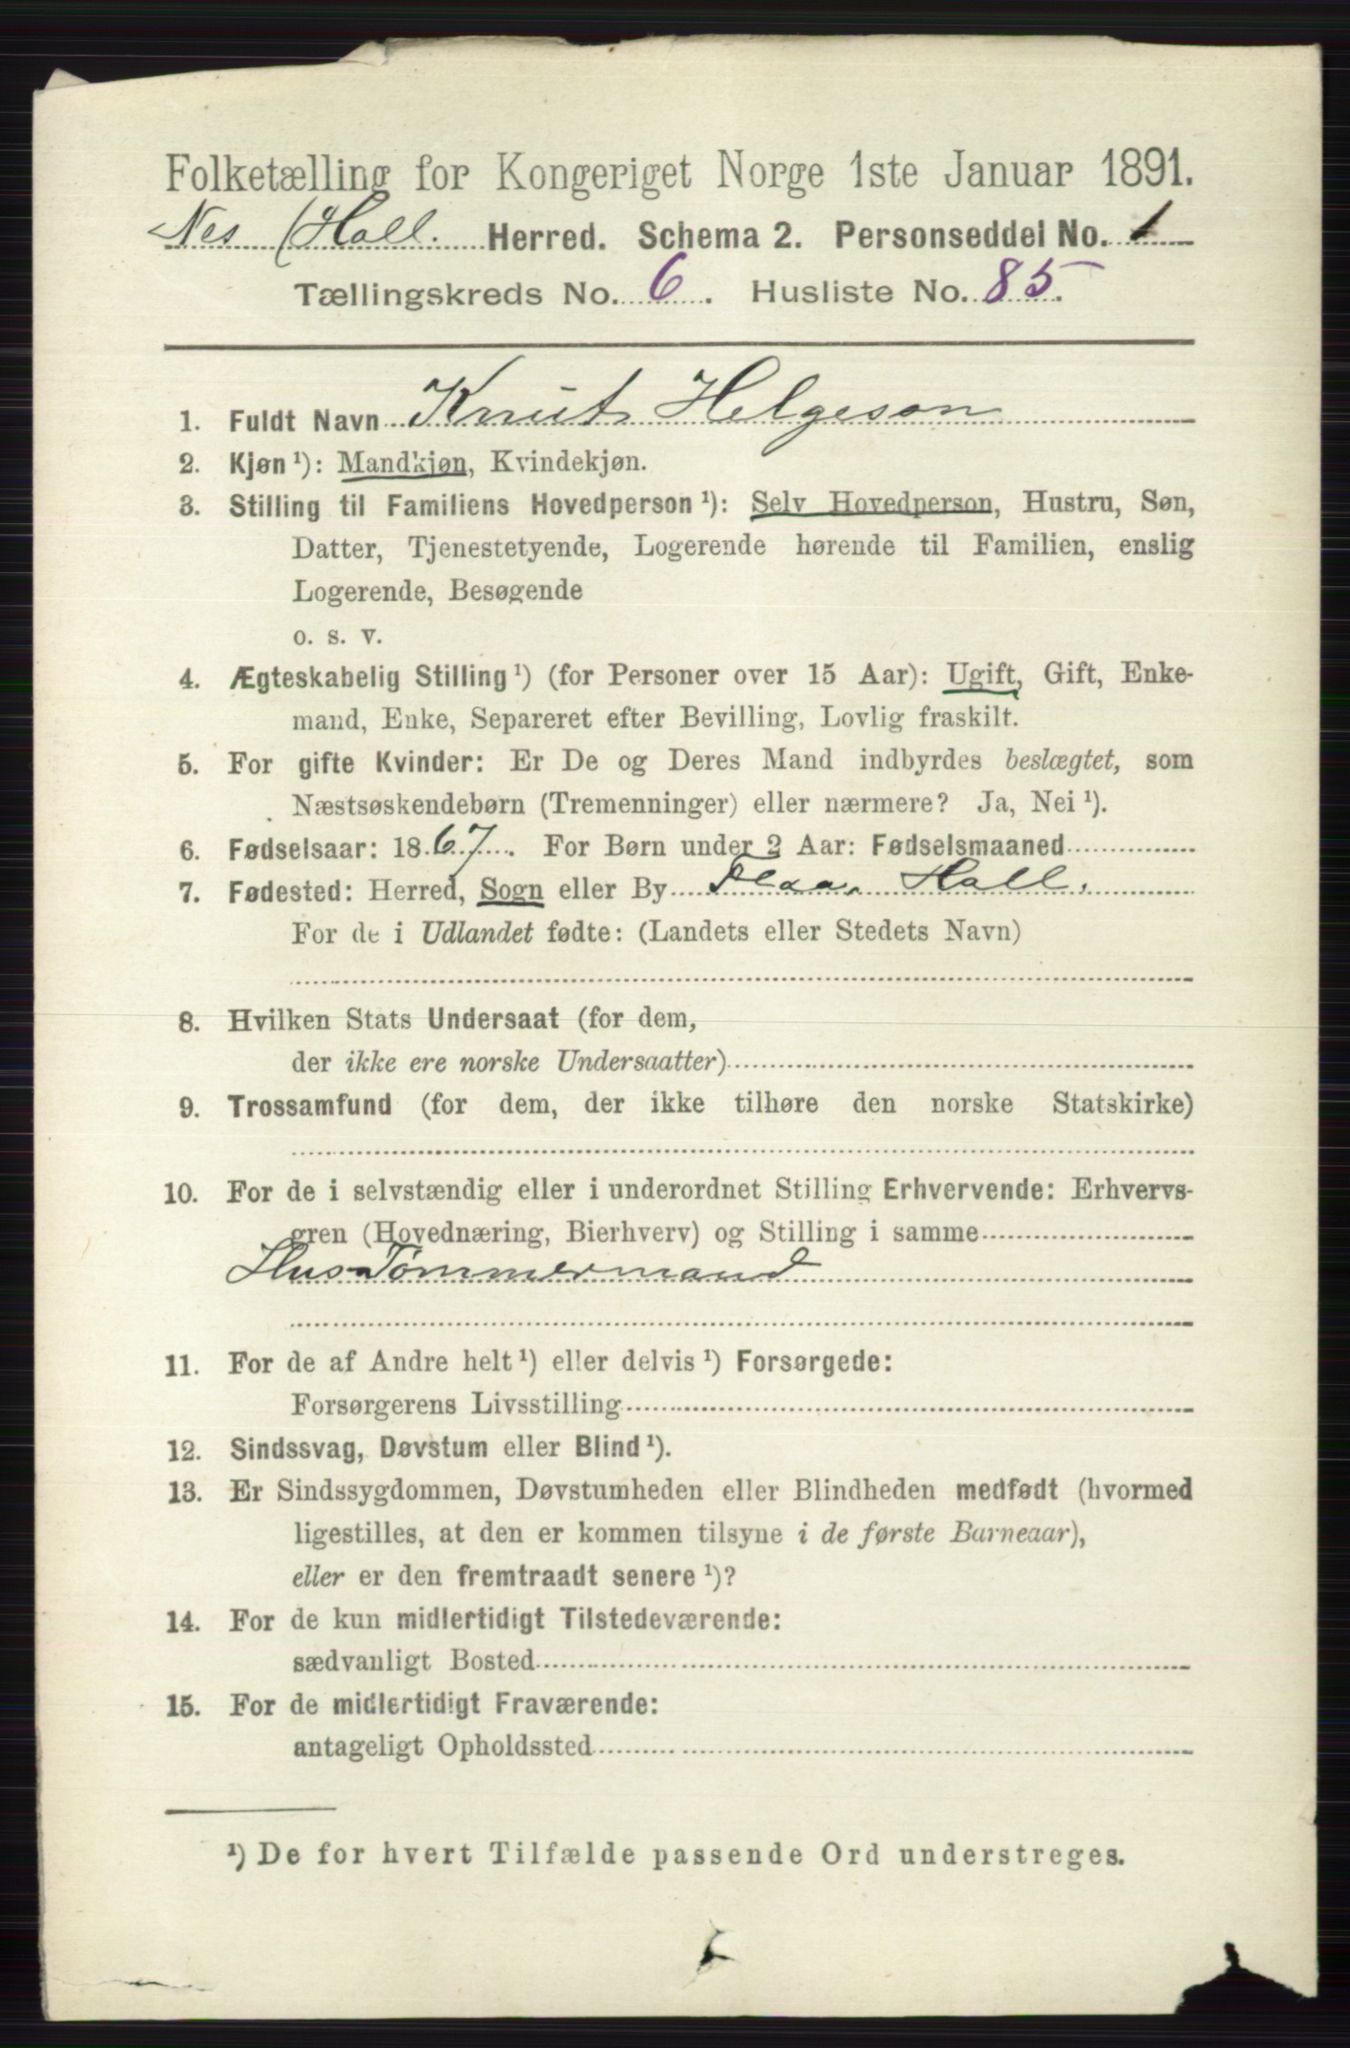 Folketælling for Kongeriget Norge 1ste Januar 1891.
Nes (Hall. Herred. Schema 2. Personseddel No. 1
Tællingskreds No. 6. Husliste No. 85.
1. Fuldt Navn Knut Helgeson
2. Kjøn ¹): Mandkjøn, Kvindekjøn.
3. Stilling til Familiens Hovedperson ¹): Selv Hovedperson, Hustru, Søn,
Datter, Tjenestetyende, Logerende hørende til Familien, enslig
Logerende, Besøgende
o. s. v.
4. Ægteskabelig Stilling ¹) (for Personer over 15 Aar): Ugift, Gift, Enke-
mand, Enke, Separeret efter Bevilling, Lovlig fraskilt.
5. For gifte Kvinder: Er De og Deres Mand indbyrdes beslægtet, som
Næstsøskendebørn (Tremenninger) eller nærmere? Ja, Nei ¹).
6. Fødselsaar: 1867. For Børn under 2 Aar: Fødselsmaaned
7. Fødested: Herred, Sogn eller By Flaa. Hall.
For de i Udlandet fødte: (Landets eller Stedets Navn)
8. Hvilken Stats Undersaat (for dem,
der ikke ere norske Undersaatter)
9. Trossamfund (for dem, der ikke tilhøre den norske Statskirke)
10. For de i selvstændig eller i underordnet Stilling Erhvervende: Erhvervs-
gren (Hovednæring, Bierhverv) og Stilling i samme
Hus-Tømmermand
11. For de af Andre helt ¹) eller delvis ¹) Forsørgede:
Forsørgerens Livsstilling
12. Sindssvag, Døvstum eller Blind ¹).
13. Er Sindssygdommen, Døvstumheden eller Blindheden medfødt (hvormed
ligestilles, at den er kommen tilsyne i de første Barneaar),
eller er den fremtraadt senere ¹)?
14. For de kun midlertidigt Tilstedeværende:
sædvanligt Bosted
15. For de midlertidigt Fraværende:
antageligt Opholdssted
¹) De for hvert Tilfælde passende Ord understreges.